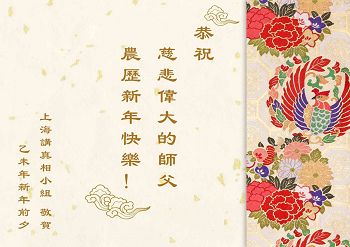 恭祝
慈悲偉大的師父
農歷新年快樂！
上海講真相小組 敬賀
乙未年新年前夕